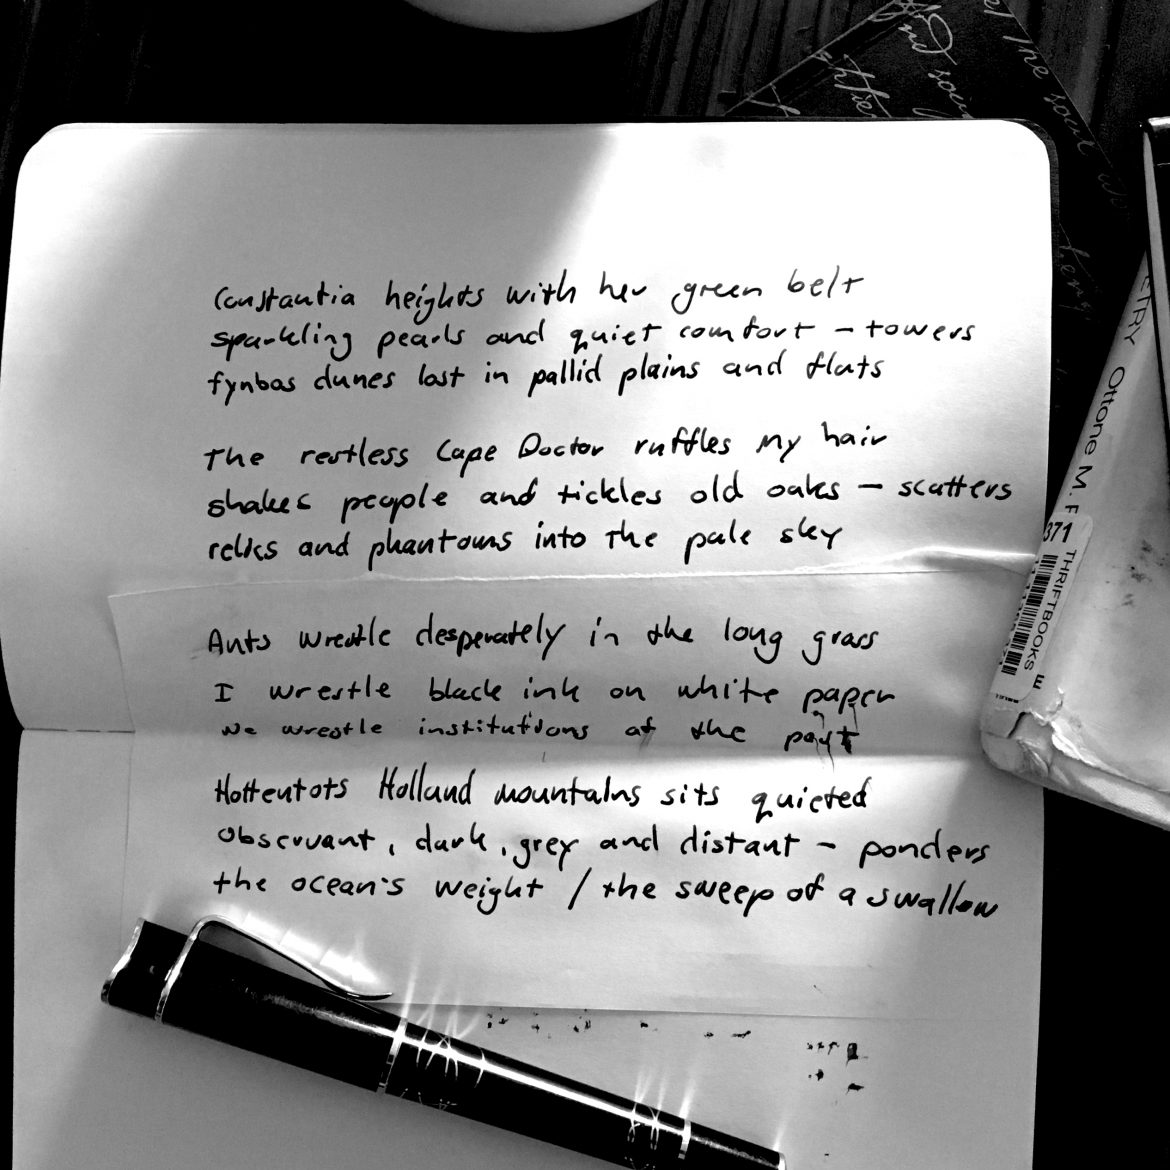 Constantia heights with her green belt
sparkling pearls and quiet comfort – towers
fynbos dunes lost in pallid plains and flats
The restless Cape Doctor ruffles my hair
shakes people and tickles old oaks – scatters
relics and phantoms into the pale sky
Ants wrestle desperately in the long grass
I wrestle black ink on white paper
We wrestle institutions of the past
Hottentots Holland mountains sits quieted
observant, dark, grey and distant – ponders
the ocean's weight / the sweep of a swallow
Ottone M.
371
THRIFTBOOKS
the soul
and